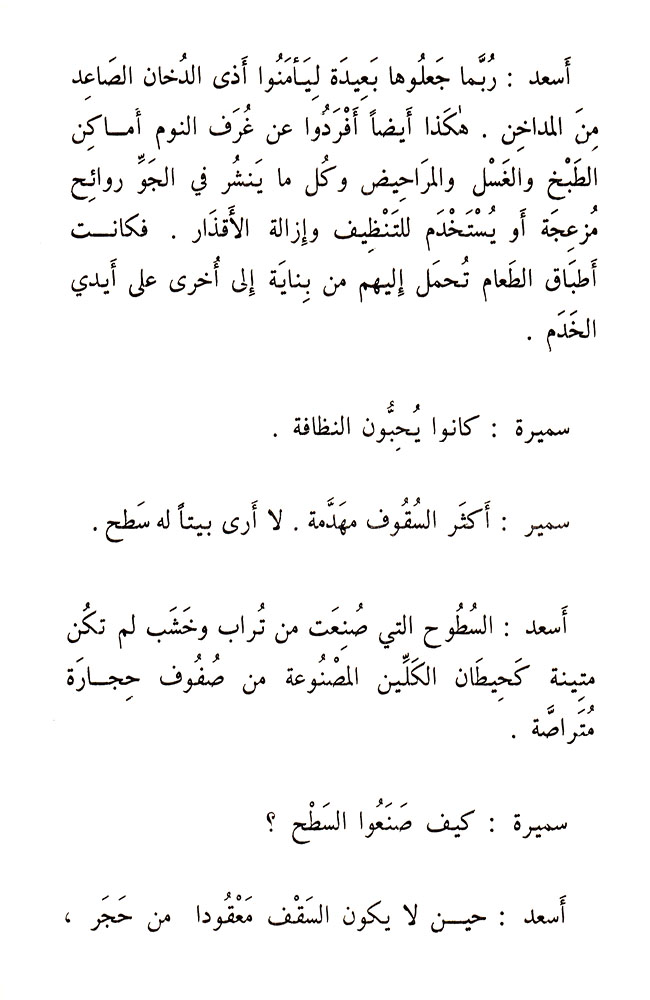 أَسعد : رُبَّما جَعلُوها بَعِيدَة لِيَأمَنُوا أَذى الدُخان الصَاعِد
مِنَ المداخِن . هٰكَذا أَيضاً أَفْرَدُوا عن غُرَف النوم أَماكِن
الطَبْخ والغَسْل والمرَاحِيض وكُل ما يَنشُر في الجَوِّ روائِح
مُزعِجَة أَو يُسْتَخْدَم للتَنْظِيف وإِزالة الأَقذَار . فكانت
أَطبَاق الطَعام تُحمَل إِليهم من بِنايَة إِلى أُخرى على أَيدي
الخَدَم .
سميرة : كانوا يُحِبُّون النظافة .
سمير : أَكثَر السُقُوف مهَدَّمة . لا أَرى بيتاً له سَطح .
أَسعد : السُطُوح التي صُنِعَت من تُراب وخَشَب لم تكُن
متِينة كَحِيطَان الكَلِّين المصْنُوعة من صُفُوف حِجارَة
مُتَراصَّة .
سميرة : كيف صَنَعُوا السَطْح ؟
أَسعد : حين لا يكون السَقْف مَعْقُودا من حَجَر ،